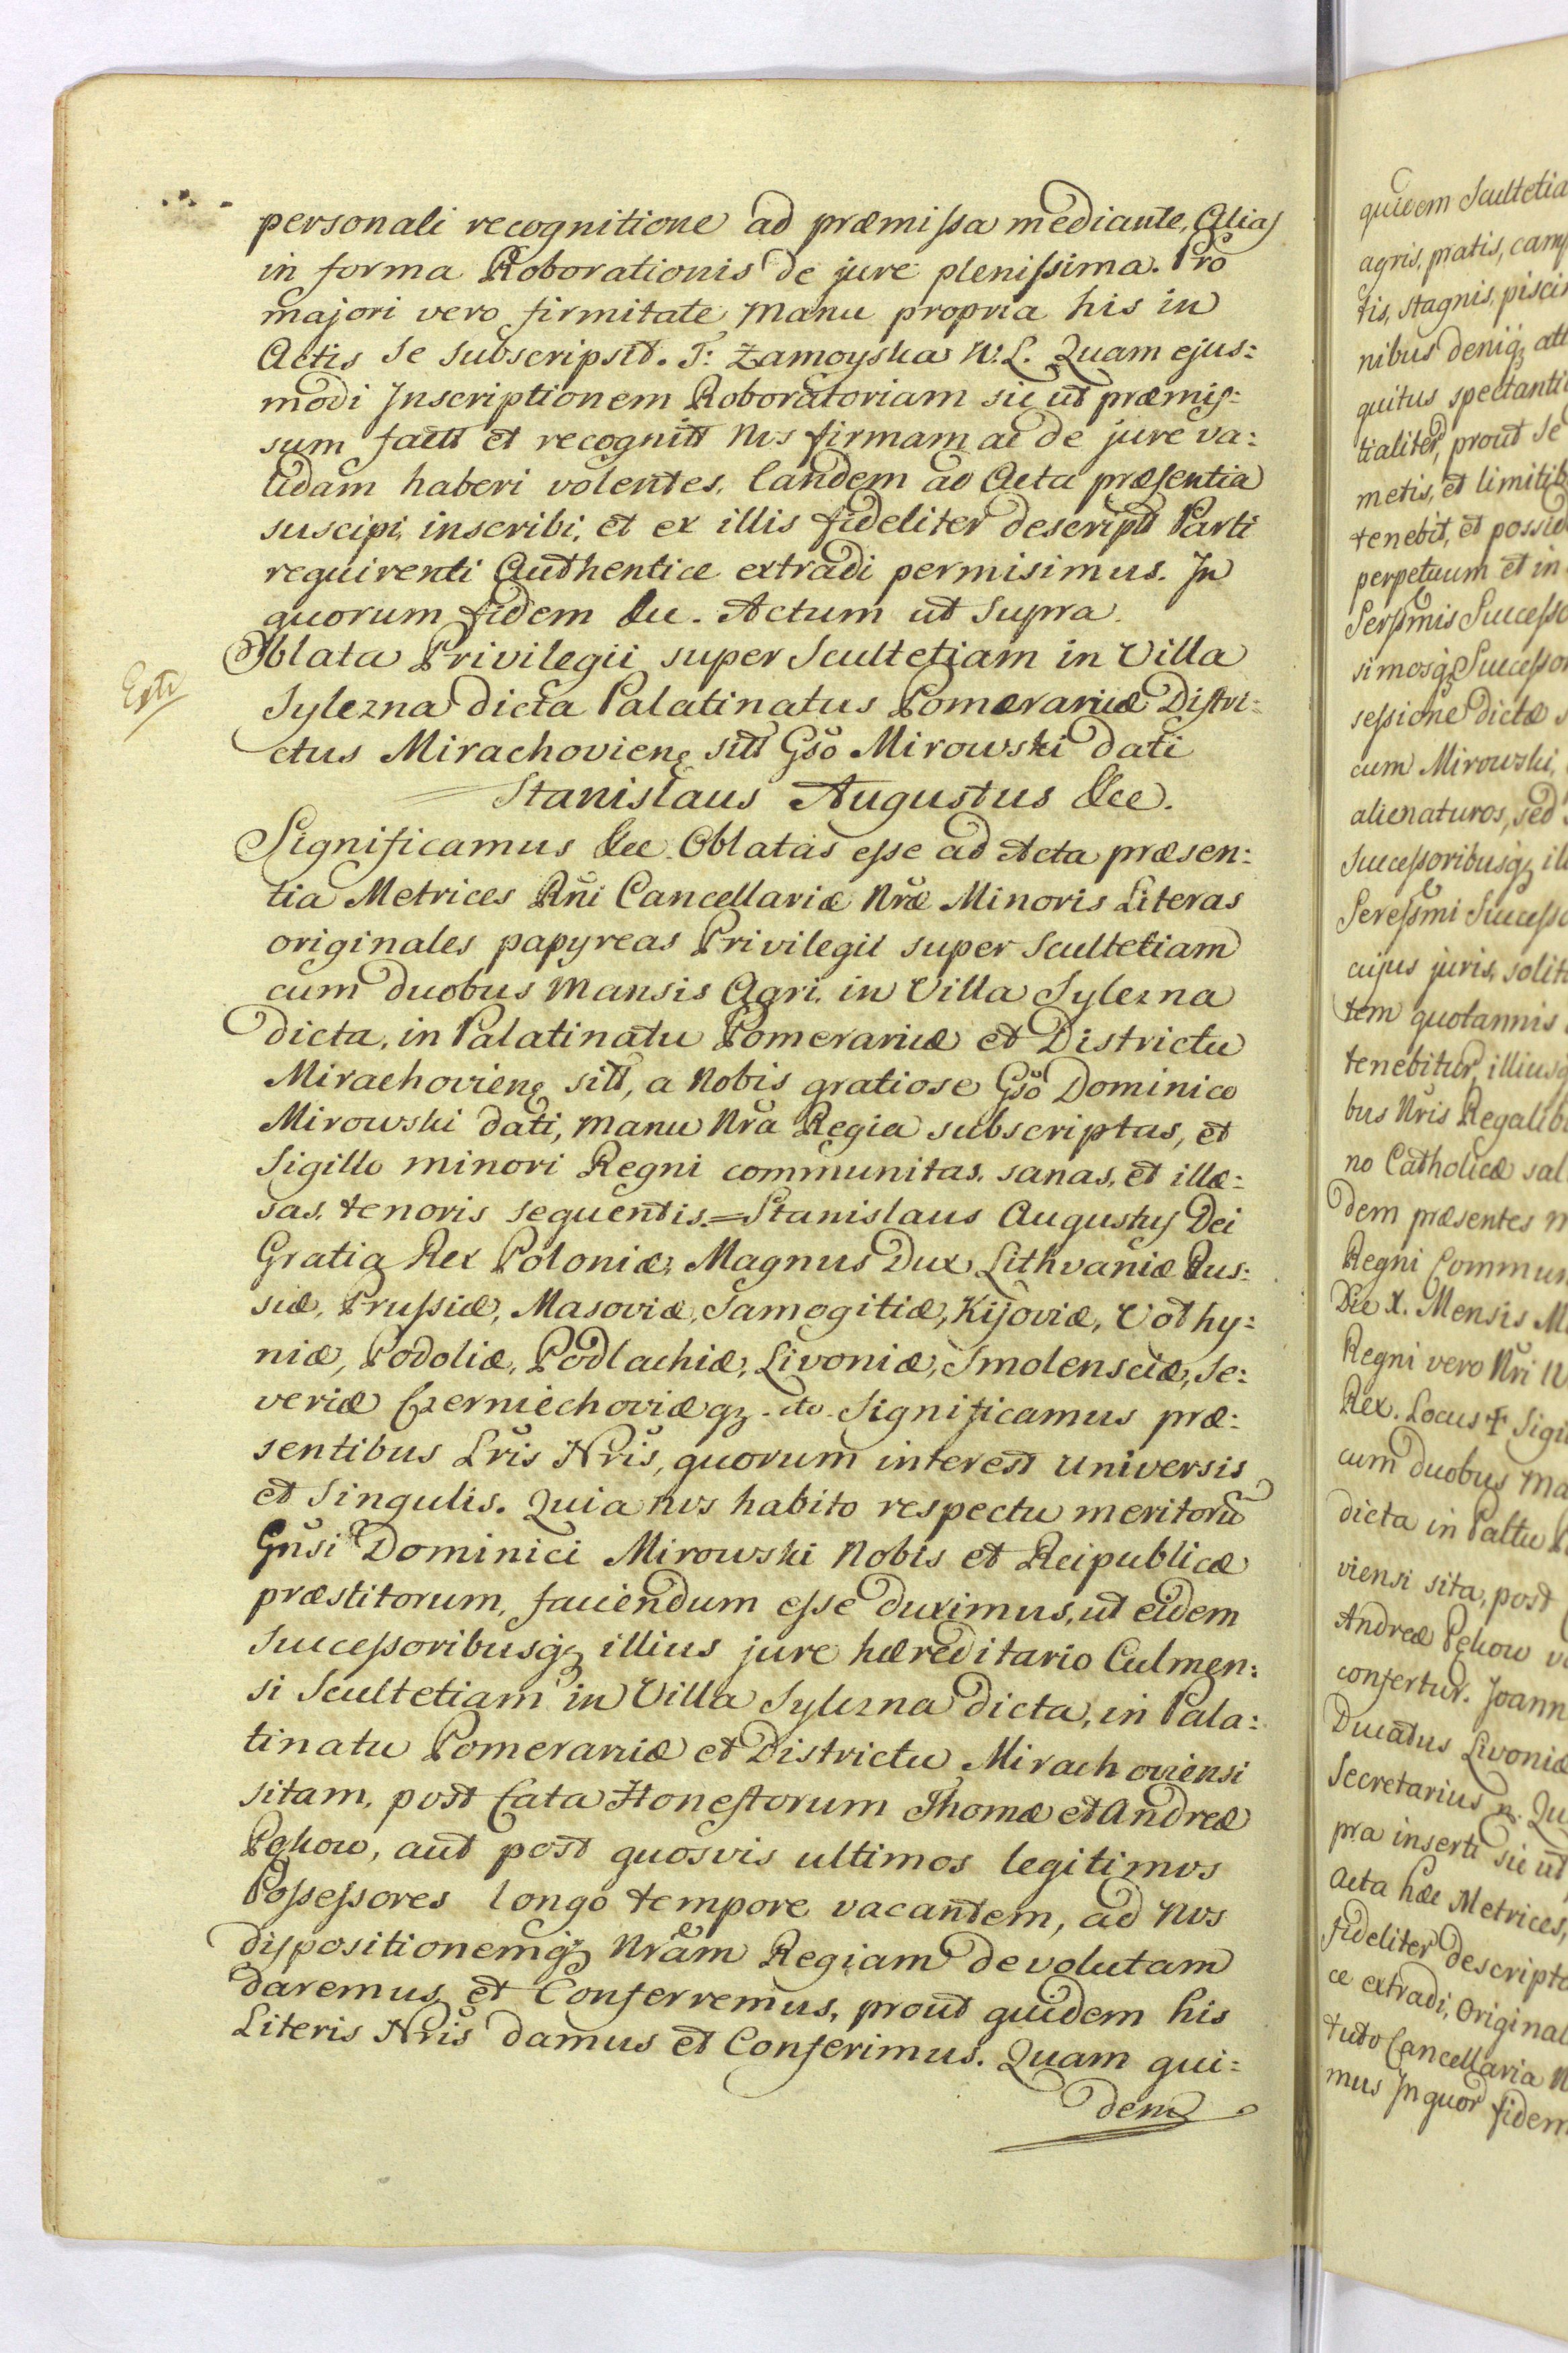 personali recognitione ad præmissa mediante, Alias
in forma Roborationis de jure plenissima. Pro
majori vero firmitate manu propria his in
Actis se subscripsit. T: Zamoyska W. L. Quam ejus:
modi Inscriptionem Roboratoriam sic ut præmis:
sum factt et recognitt nos firmam ac de jure va:
lidam haberi volentes, Eandem ad Acta præsentia
suscipi, inscribi, et ex illis fideliter descript Parti
requirenti Authentice extradi permisimus. In
quorum fidem &c. Actum ut supra.
Extr
Oblata Privilegii super Scultetiam in Villa
Sylezna dicta Palatinatus Pomeraniæ Distri:
ctus Mirachovien sitt Gso Mirowski dati
Stanislaus Augustus &ce.
Significamus &ce. Oblatas esse ad Acta præsen:
tia Metrices Rni Cancellariæ Nræ Minoris Literas
originales papyreas Privilegii super Scultetiam
cum duobus Mansis Agri, in Villa Sylezna
dicta, in Palatinatu Pomeraniæ et Districtu
Mirachovien sitt, a Nobis gratiose Gso Dominico
Mirowski dati, manu Nra Regia subscriptas, et
Sigillo minori Regni communitas, sanas, et illæ:
sas, tenoris sequentis.=Stanislaus Augustus Dei
Gratia Rex Poloniæ, Magnus Dux Lithvaniæ Rus:
siæ, Prussiæ, Masoviæ, Samogitiæ, Kijoviæ, Volhy:
niæ, Podoliæ, Podlachiæ, Livoniæ, Smolensciæ, Se:
veriæ Czerniechoviæqz. Significamus præ:
sentibus Lris Nris, quorum interest universis
et Singulis. Quia nos habito respectu meritorũ
Gnsi Dominici Mirowski Nobis et Reipublicæ
præstitorum, faciendum esse duximus, ut eidem
Successoribusqz illius jure hæreditario Culmen:
si Scultetiam in Villa Sylezna dicta, in Pala:
tinatu Pomeraniæ et Districtu Mirachoviensi
sitam, post fata Honestorum Thomæ et Andreæ
Pękow, aut post quosvis ultimos legitimos
Possessores longo tempore vacantem, ad Nos
dispositionemqz Nram Regiam devolutam
daremus et Conferremus, prout quidem his
Literis Nris damus et Conferimus. Quam qui:
dem
quidem Scultetia
agris, pratis, camp
tis, stagnis, piscin
nibus deniqz att
quitus spectanti
tialiter, prout se
metis, et limitib
tenebit, et possid
perpetuum et in
Serssmis Successo
simosqz Successor
sessione dictæ
cum Mirowski,
alienaturos, sed
Successoribusqz ill
Seressmi Successo
cujus juris, solit
tem quotannis
tenebitur, illiusq
bus Nris Regalib
no Catholicæ sal
dem præsentes m
Regni Commun
Die X. Mensis M
Regni vero Nri
Rex. Locus + Sigi
cum duobus Ma
dicta in Paltu P
viensi sita, post
Andreæ Pękow v
confertur. Joann
Ducatus Livoniæ
Secretarius Qu
pra inserti sic ut
Acta hæc Metrices,
fideliter descript
ce extradi, Original
tuto Cancellaria N
mus In quor fidem